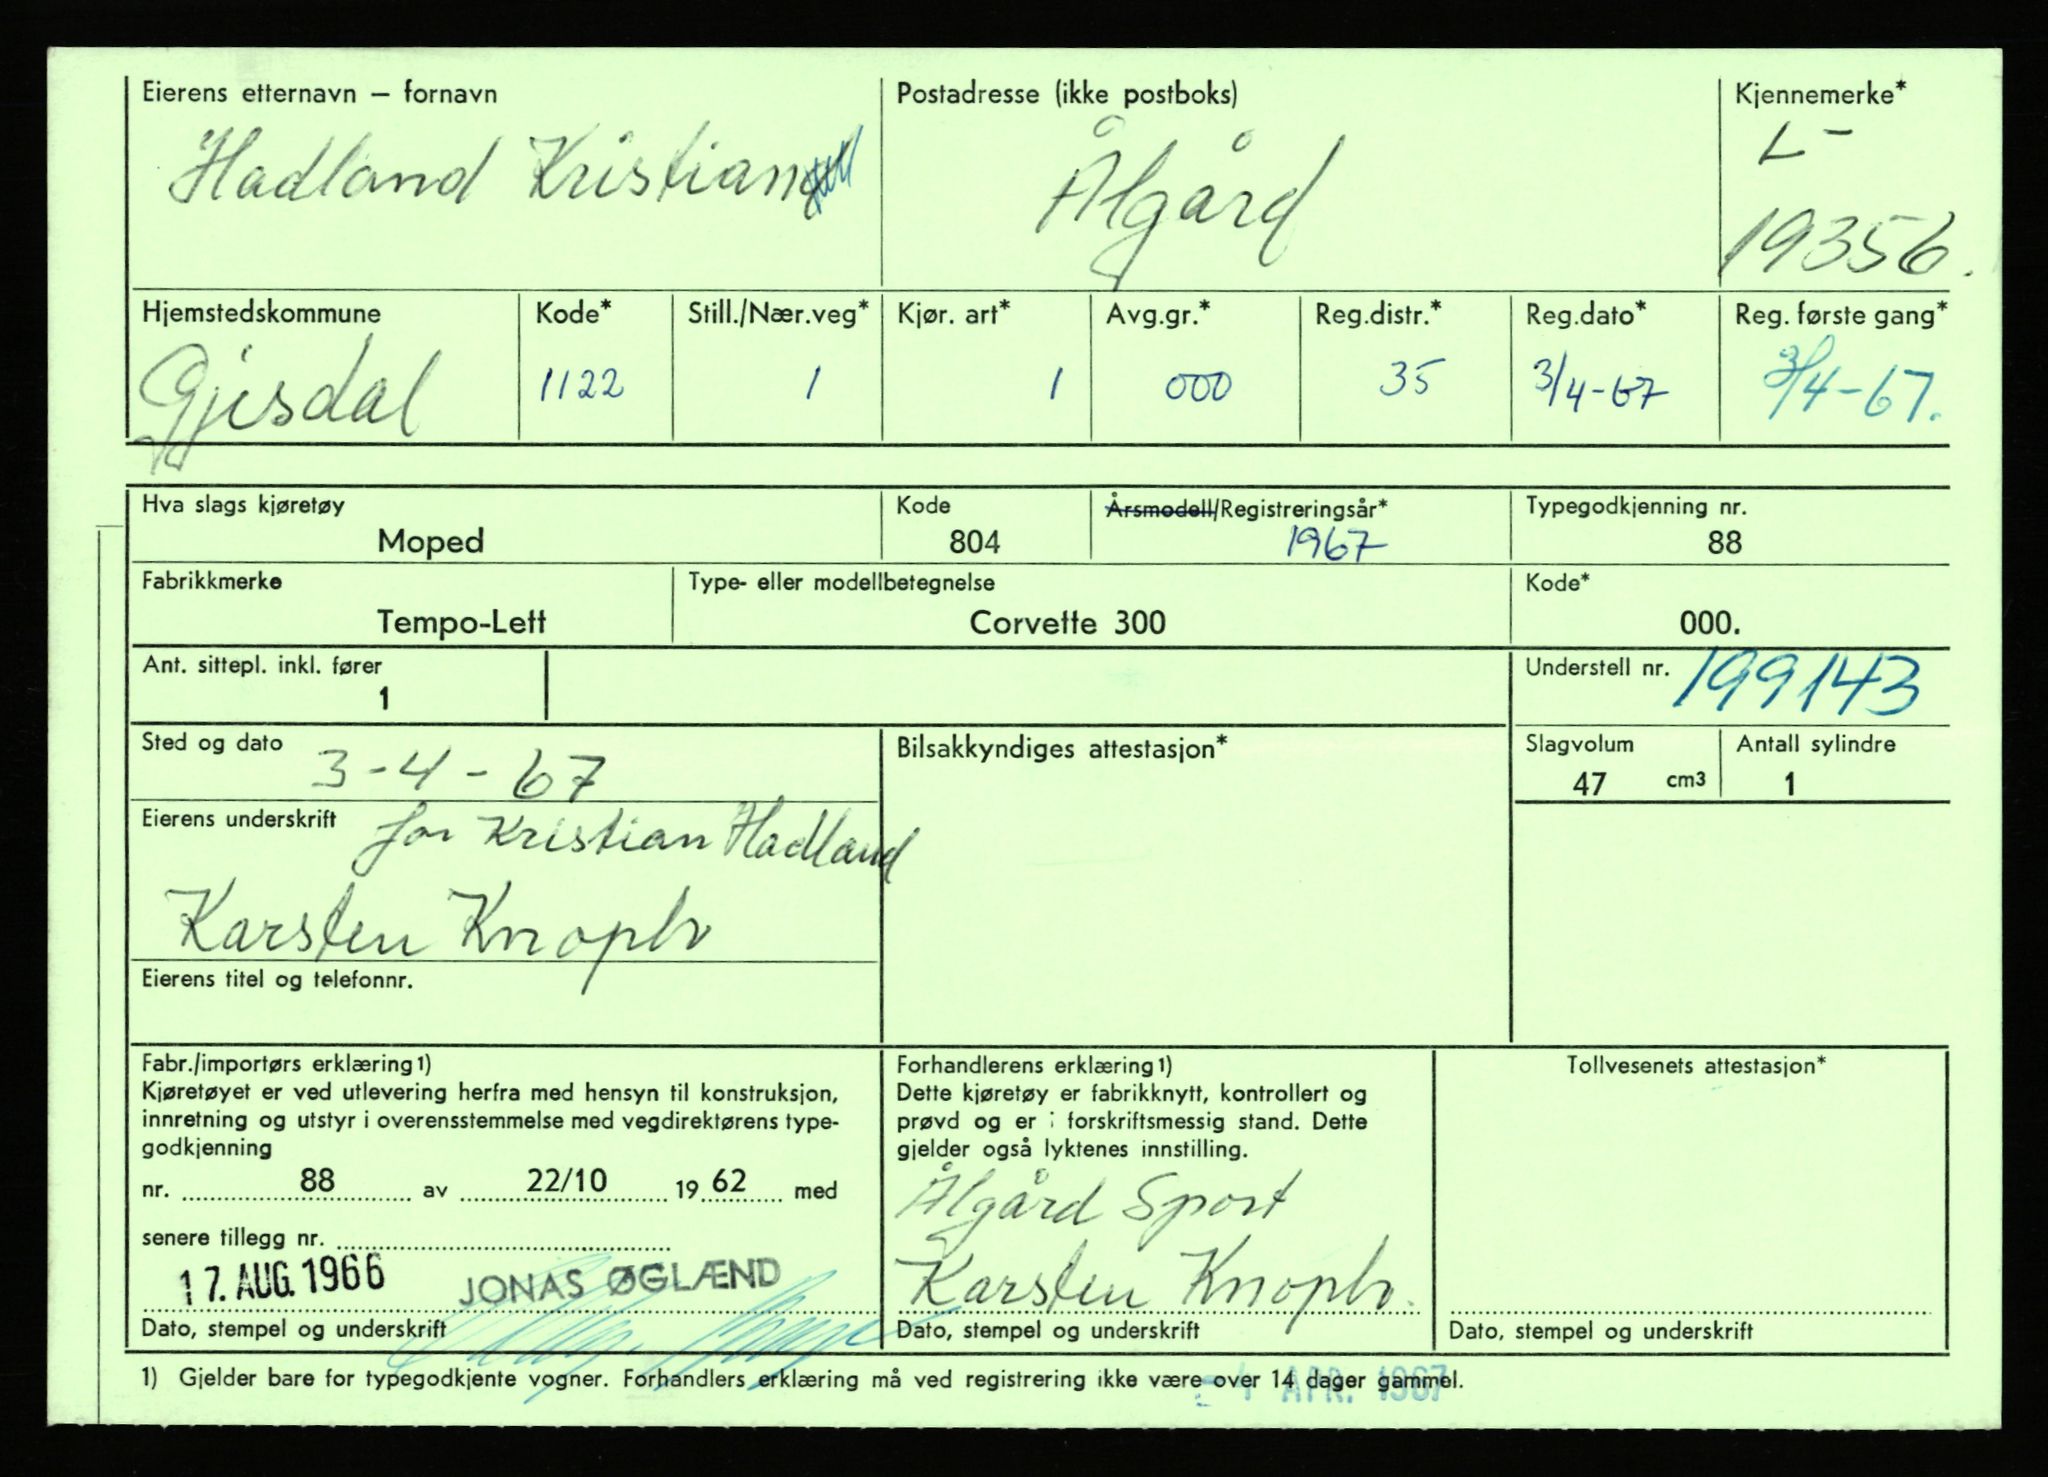 Eierens etternavn — fornavn
Hadland Kristian
Postadresse (ikke postboks)
Ålgård
Kjennemerke*
L-
19356.
Hjemstedskommune
Gjesdal
Kode*
1122
Still./Nær.veg*
1
Kjør. art*
1
Avg.gr.*
000
Reg.distr.*
35
Reg.dato*
3/4-67
Reg. første gang*
3/4-67.
Hva slags kjøretøy
Moped
Kode
804
Årsmodell/Registreringsår*
1967
Typegodkjenning nr.
88
Fabrikkmerke
Tempo-Lett
Type- eller modellbetegnelse
Corvette 300
Kode*
000.
Ant. sittepl. inkl. fører
1
Understell nr. 199143
Sted og dato
3-4-67
Bilsakkyndiges attestasjon*
Slagvolum
47 cm3
Antall sylindre
1
Eierens underskrift for Kristian Hadland
Karsten
Eierens titel og telefonnr.
Fabr./importørs erklæring 1)
Kjøretøyet er ved utlevering herfra med hensyn til konstruksjon,
innretning og utstyr i overensstemmelse med vegdirektørens type-
godkjenning
nr. 88 av 22/10 1962 med
senere tillegg nr.
17. AUG. 1966 JONAS ØGLÆND
Dato, stempel og underskrift
Forhandlerens erklæring 1)
Dette kjøretøy er fabrikknytt, kontrollert og
prøvd og er i forskriftsmessig stand. Dette
gjelder også lyktenes innstilling.
Ålgård Sport
Karsten
Dato, stempel og underskrift
Tollvesenets attestasjon*
Dato, stempel og underskrift
1) Gjelder bare for typegodkjente vogner. Forhandlers erklæring må ved registrering ikke være over 14 dager gammel.
APR. 1967